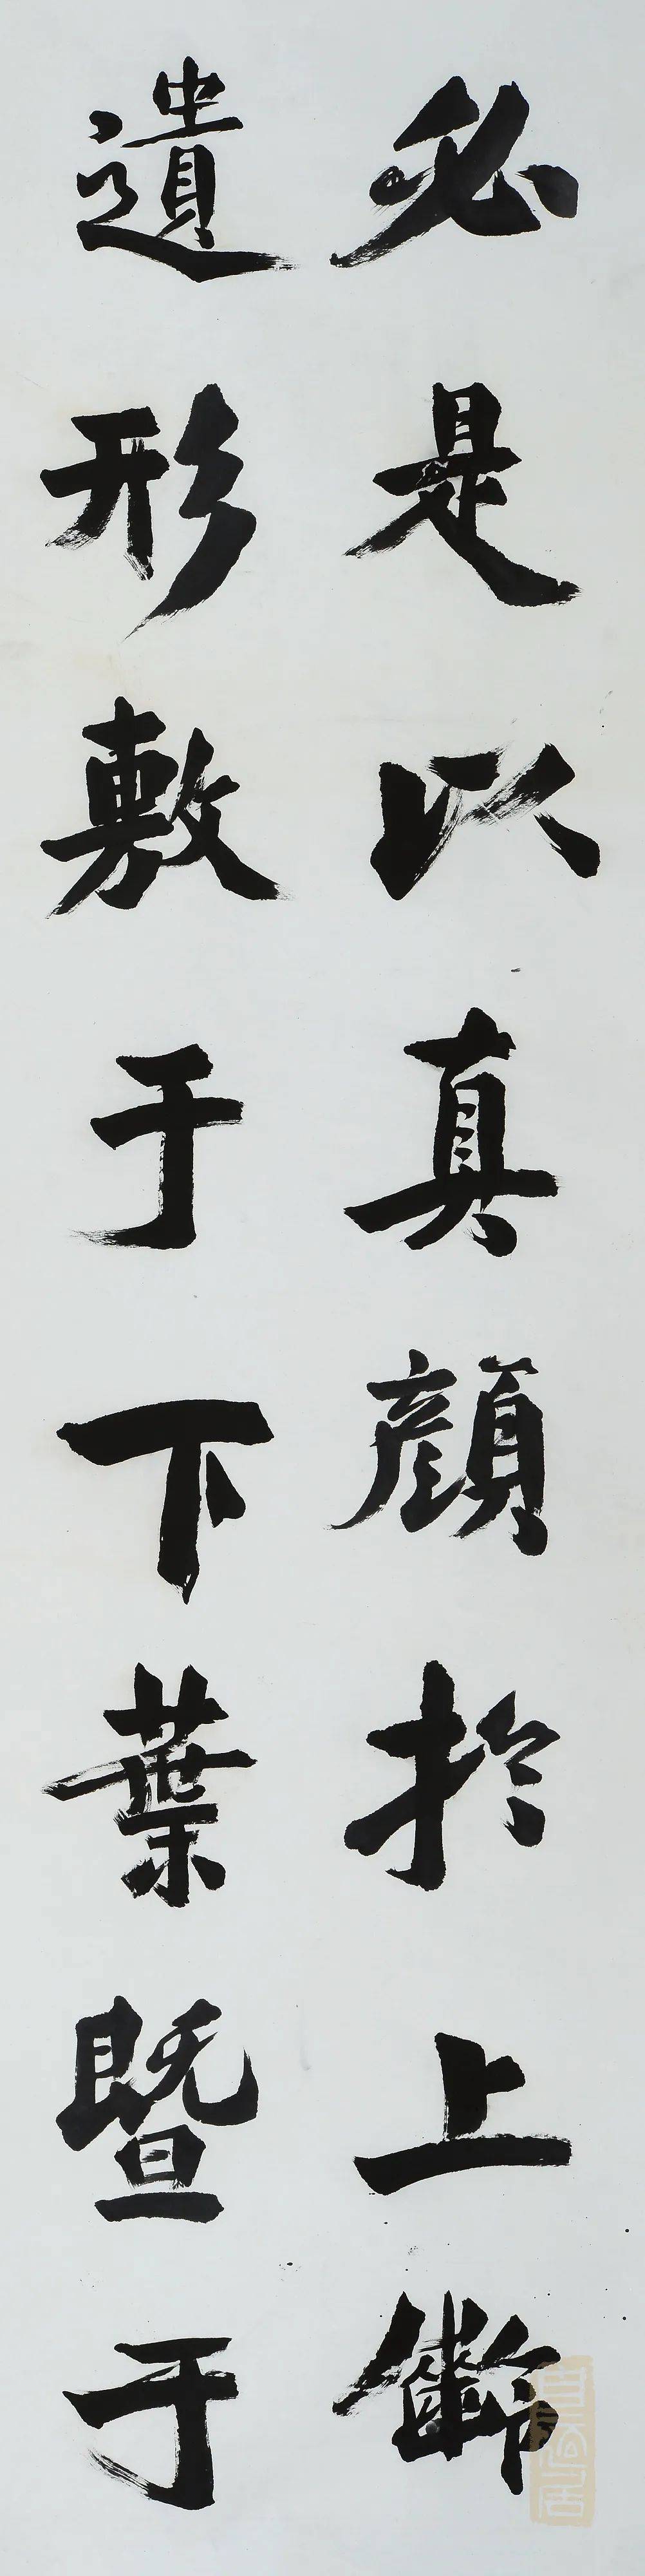 必是以真顏於上齡
遺形敷于下葉暨于